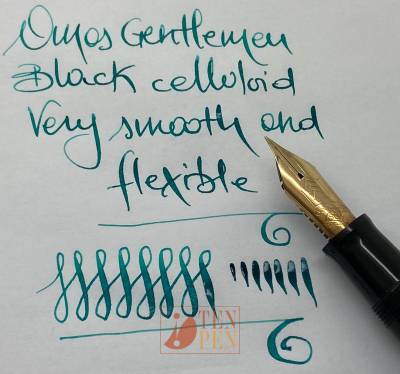 Omas Gentlemen
Black celluloid
Very smooth and
flexible
TEN
PEN